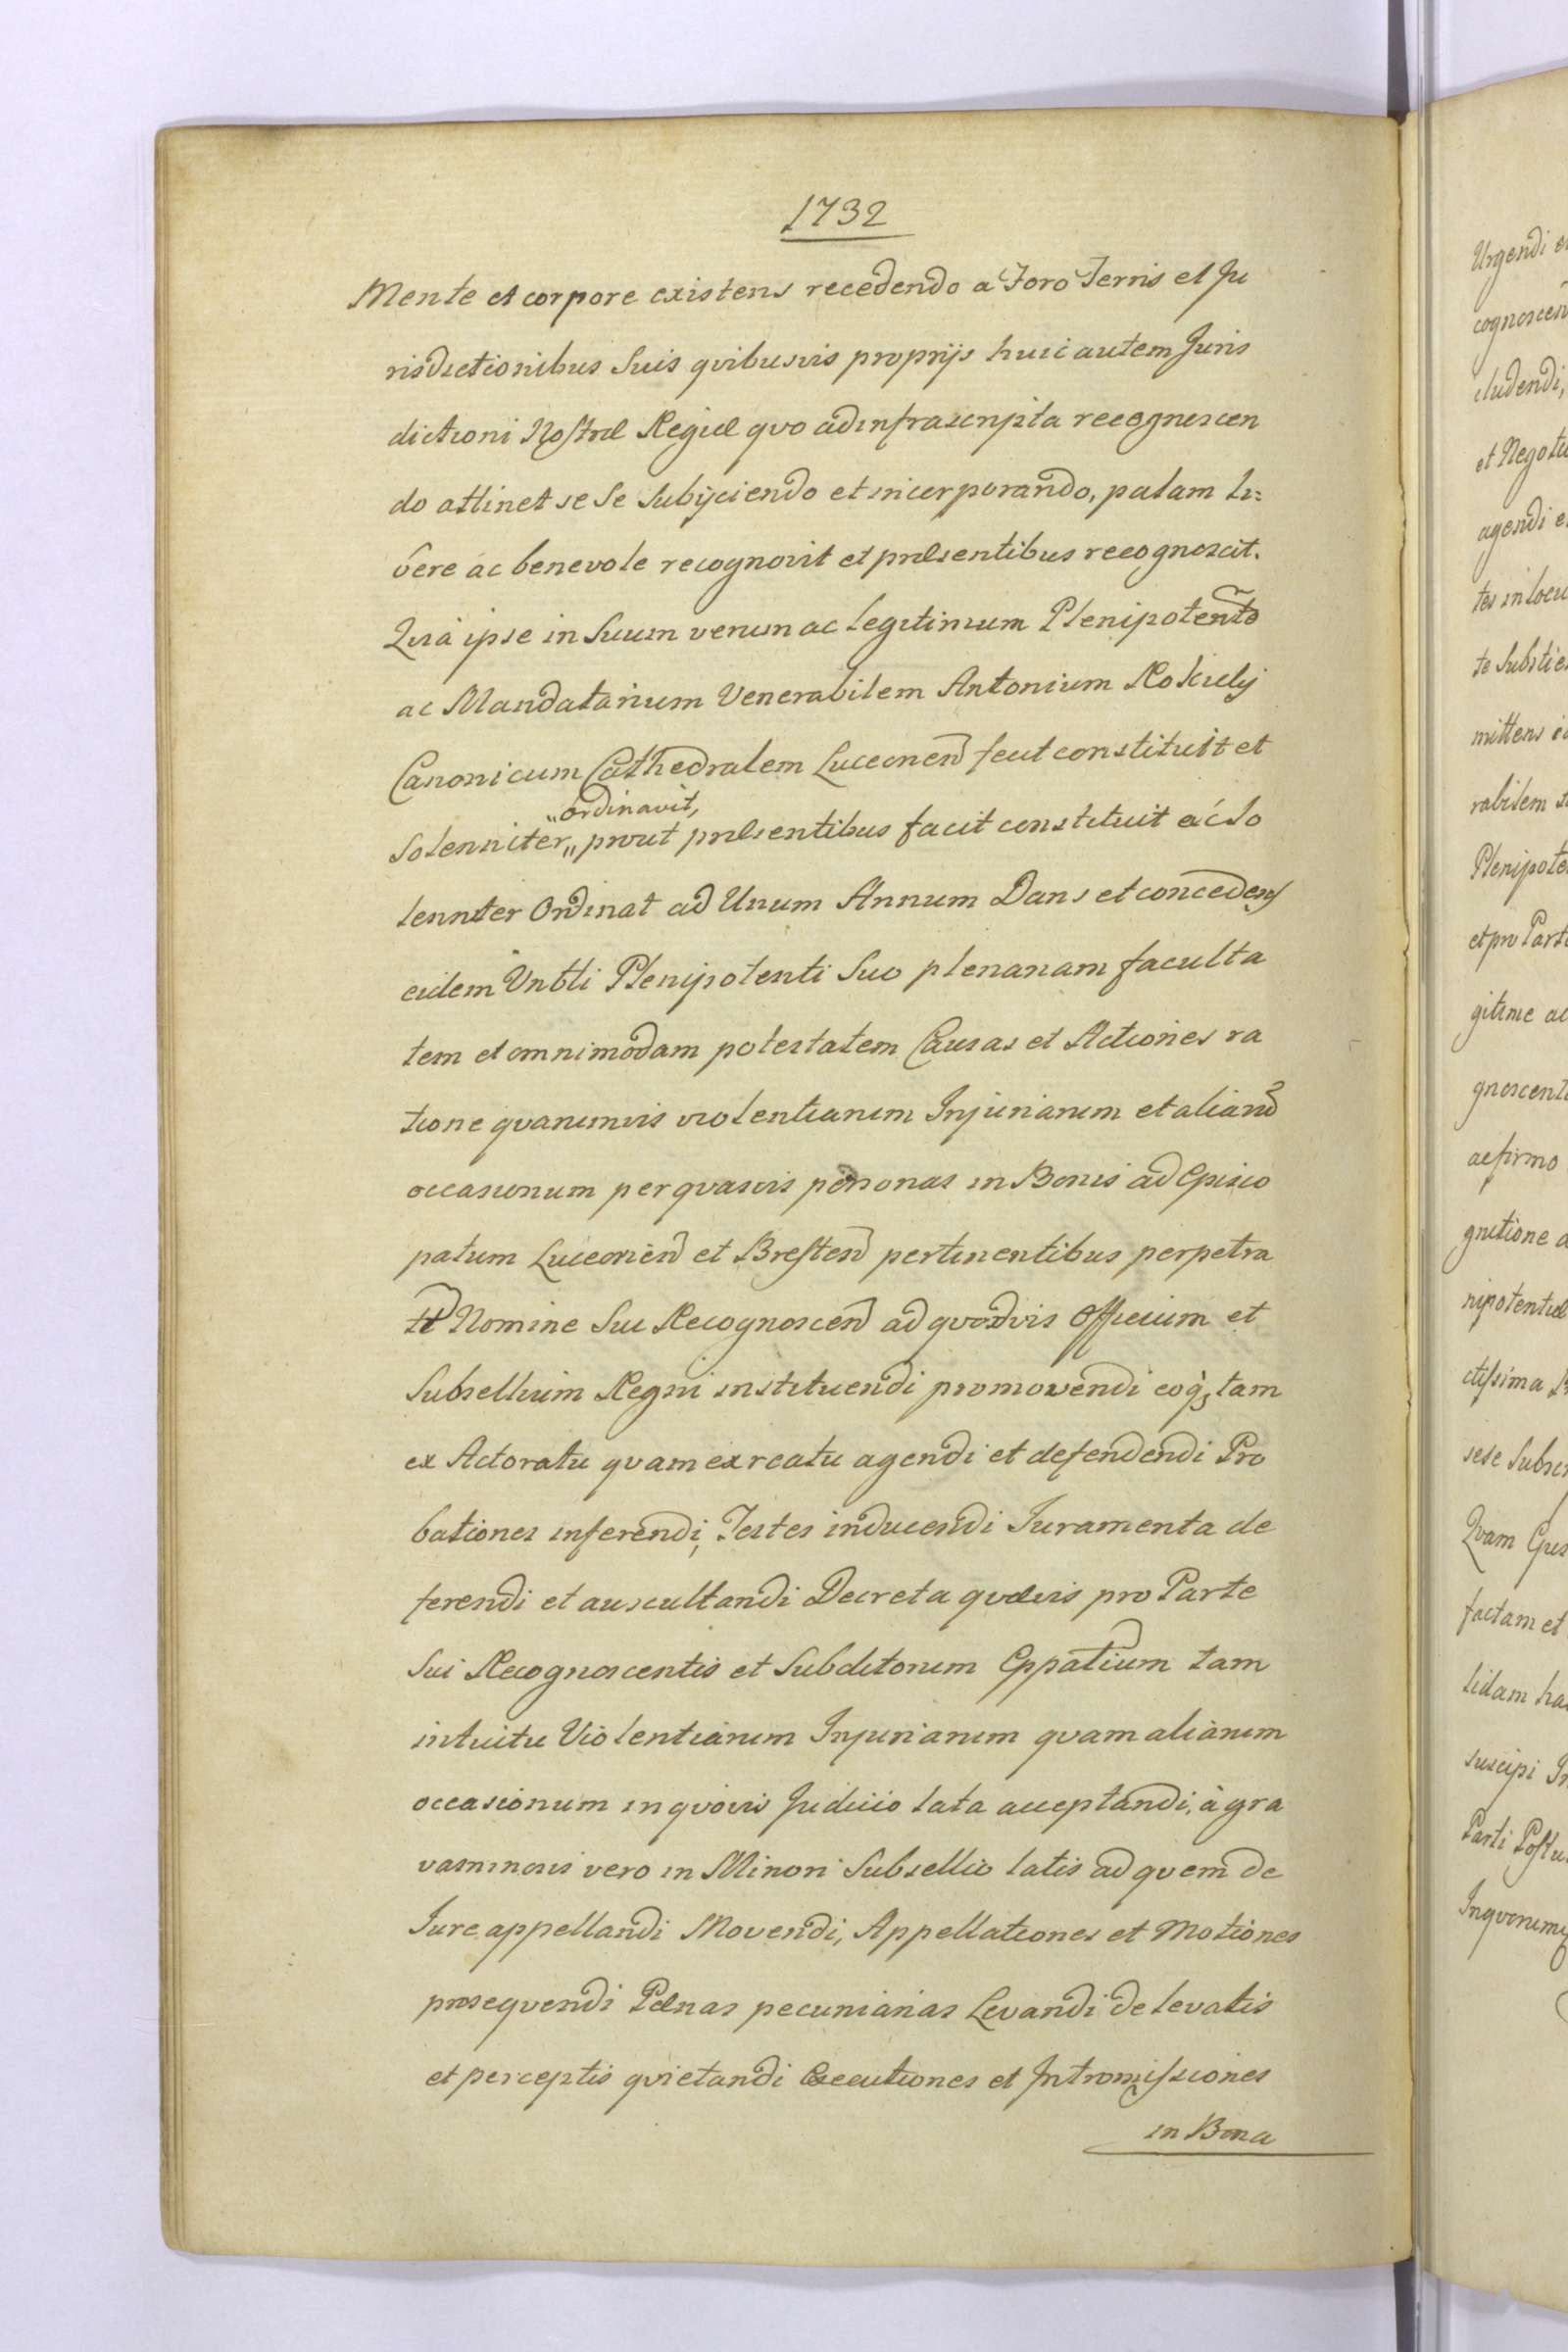 1732
Mente et corpore existens recedendo a Foro Terris et Ju
risdictionibus Suis qvibusvis proprijs huic autem Juris
dictioni Nostræ Regiæ qvo ad infrascripta recognoscen
do attinet se se Subijciendo et incorporando, palam li=
bere ac benevole recognovit et præsentibus recognoscit.
Qvia ipse in Suum verum ac legitimum Plenipotento
ac Mandatarium Venerabilem Antonium
Canonicum Cathedralem Luceorien fecit constituit et
"ordinavit,
Solenniter„ prout præsentibus facit constituit ac So
lenniter Ordinat ad Unum Annum Dans et concedens
eidem Vnbli Plenipotenti Suo plenariam faculta
tem et omnimodam potestatem Causas et Actiones ra
tione qvarumvis violentiarum Injuriarum et aliaru
occasionum per qvasvis personas in Bonis ad Episco
patum Luceorien et Bresten pertinentibus perpetra
t Nomine Sui Recognoscen ad qvodvis Officium et
Subsellium Regni instituendi promovendi eoq, tam
ex Actoratu qvam ex reatu agendi et defendendi Pro
bationes inferendi, Testes inducendi Juramenta de
ferendi et auscultandi Decreta qvævis pro Parte
Sui Recognoscentis et Subditorum Eppatium tam
intuitu Violentiarum Injuriarum qvam aliarum
occasionum in qvovis Judicio lata acceptandi, à gra
vaminosis vero in Minori Subsellio latis ad qvem de
Jure appellandi Movendi, Appellationes et Motiones
proseqvendi Pænas pecuniarias Levandi de levatis
et perceptis qvietandi Executiones et Intromissiones
in Bona
Urgendi
cognoscen
cludendi,
et Negotia
agendi e
tes in locu
te Substi
mittens
rabilem
Plenipote
et pro Part
gitime ac
gnoscent
ac firmo
gnitione
nipotentiæ
ctissima
sese Subsc
Qvam
factam et
lidam
suscipi
Parti Postu
In qvorum